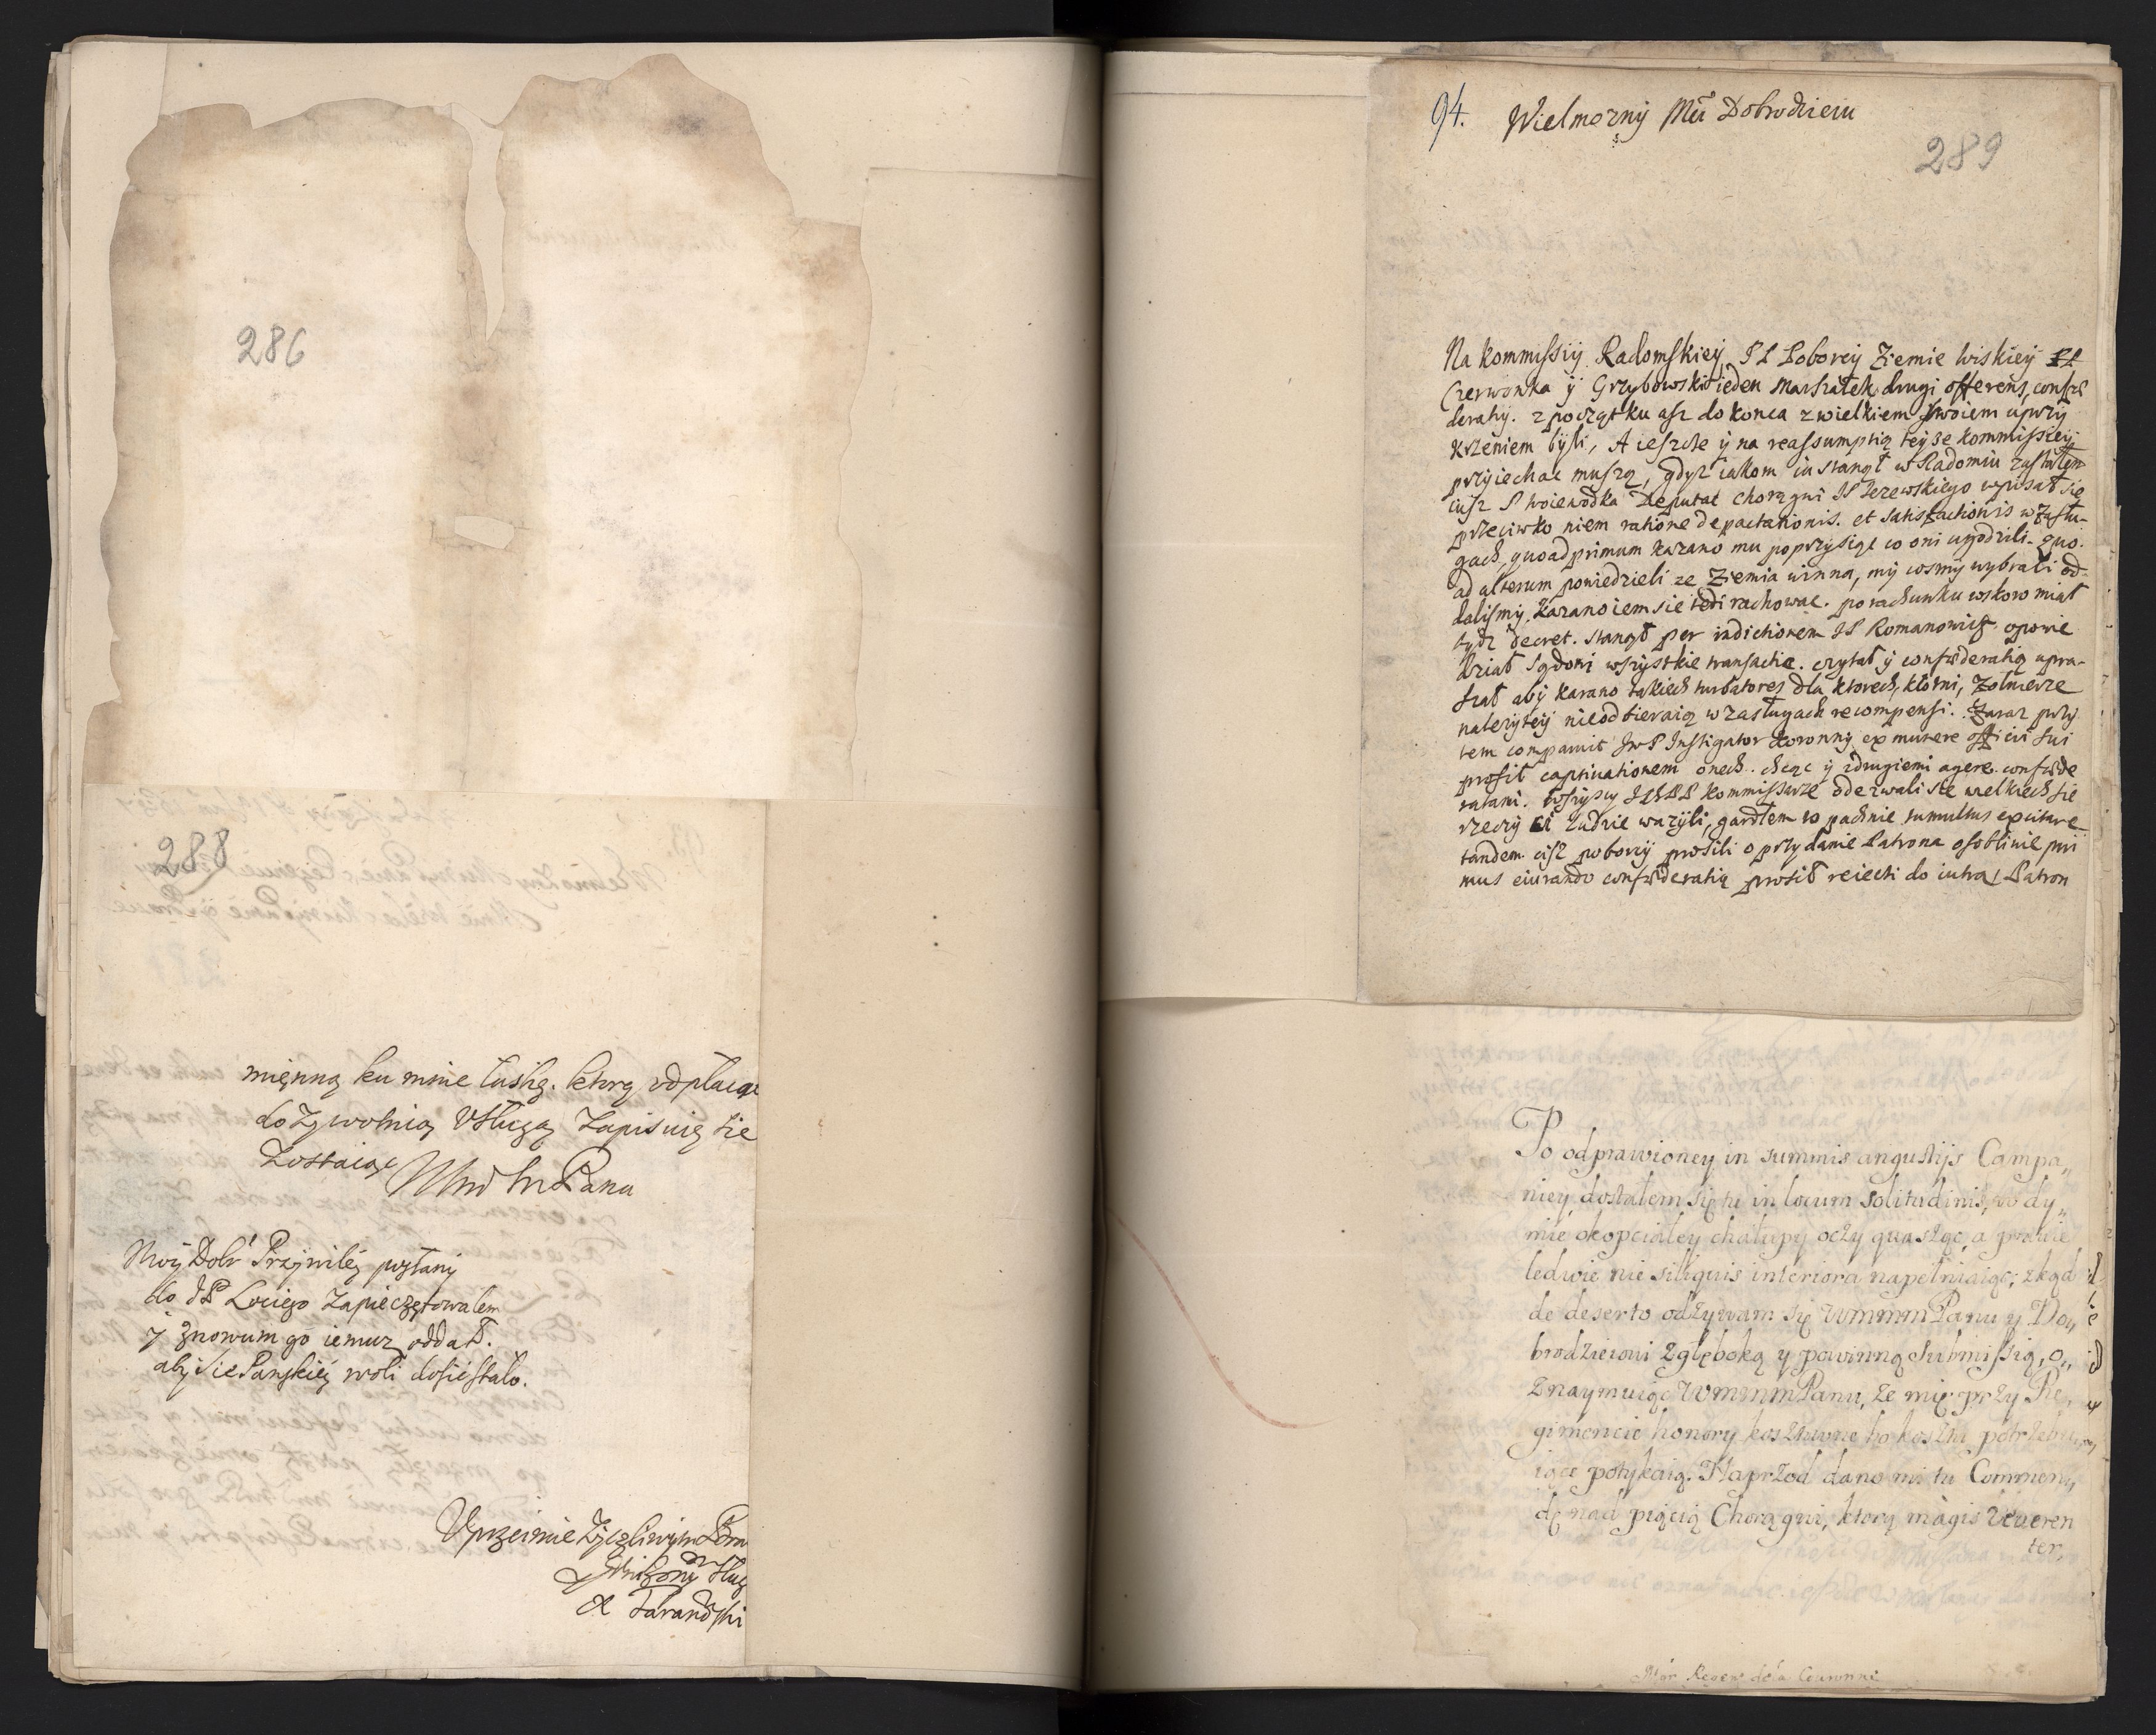 286
288
mięnną ku mnie łaskę. ktorą odpłacaiąc
dozywotnią Usługą Zapisuię sie
Zostaiąc
Pana
Moy Dobr Przywiley posłany
do JP Łockiego Zapieczętowałem
y znowum go iemuz oddał.
aby sie Panskiey woli dosić stało.
Uprzeimie Zyczliwym
y Unizony Sług
94. Wielmozny Mći Dobrodzieiu
289
Na kommissiy Radomskiey IP Poborcy Ziemie Wiskiey
Czerwonka y Grzybowski ieden Marszałek drugi offerens, confæ
deratiy. z początku asz do konca z wielkiem swoiem uprzy
krzeniem byli, A ieszcze y na reassumptią teyze kommissiey
przyiechac muszą, gdysz iakom iu stanął w Radomiu zastałem
iusz P Woiewodka Deputat chorągwi IP Jezewskiego wpisał się
przeciwko niem ratione depactationis. et satisfactionis w Zasłu-
gach, quoad primum kazano mu poprzysiąc co oni ugodzili. quo.
ad alterum powiedzieli ze Ziemia winna, my cosmy wybrali od-
dalismy. kazano iem sie tedi rachowac. po rachunku wskoro miał
bydz decret. stanął per indictionem IP Romanowicz opowie
dział Sądowi wszystkie transactie. czytał y confæderatią upra-
szał aby karano takiech turbatores dla ktorech, kłotni, Zołnierze
nalezytey nieodbieraią w zasługach recompensi. Zaraz przy
tem comparuit JwP Instigator Koronny ex munere officii sui
prosił captivationem onech. chcąc y zdrugiemi agere confæde
ratami. Wszyscy Kommissarze odezwali sie wielkiech sie
rzeczy ci ludzie wazyli, gardłem to pachnie tumultus excitare
tandem cisz poborcy prosili o przydanie Patrona osobliwie pri
mus eiurando confæderatią prosił reiecti do iutra, Patron
Po odprawioney in summis angustijs Campa„
niey, dostałem się tu in locum solitudinis, w dy„
mie okopciałey chałupy oczy kwasząc, a prawie
ledwie nie siliquis interiora napełniaiąc; zkąd
de deserto odzywam się WMMMPanu y Do„
brodzieiowi zgłęboką y powinną submissią, o„
znaymuiąc WMMMPanu, ze mię przy Re„
gimencie honory kosztowne bo kosztu potrzebu„
iące potykaią. Naprzod dano mi tu Commen„
dę nad pięcią Chorągwi, ktory magis reveren
ter,